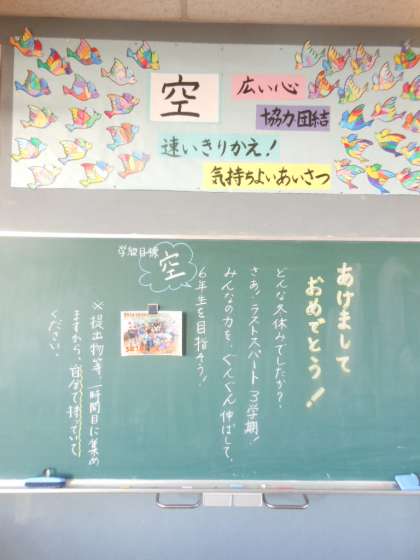 空
広い心
協力団結
速いきりかえ!
気持ちよいあいさつ
あけまして
おめでとう!
どんな冬休みでしたか?
さあ!ラストスパート3学期!
みんなの力を、ぐんぐん伸ばして、
6年生を目指そう!
学級目標
空
※提出物等、一時間目に集め
ますから、自分で持っていて
ください。